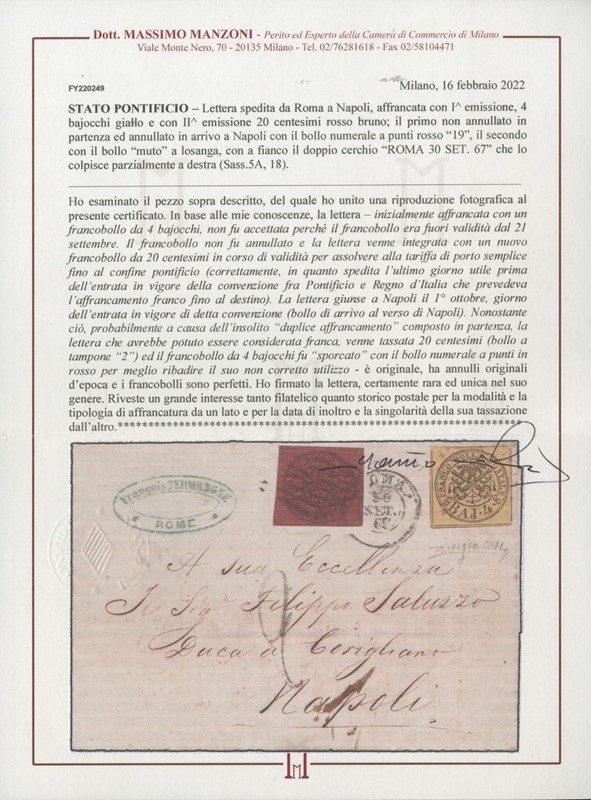 Dott. MASSIMO MANZONI - Perito ed Esperto della Camera di Commercio di Milano
Viale Monte Nero, 70 - 20135 Milano - Tel. 02/76281618 - Fax 02/58104471
FY220249
Milano, 16 febbraio 2022
STATO PONTIFICIO – Lettera spedita da Roma a Napoli, affrancata con I^ emissione, 4
bajocchi giallo e con II^ emissione 20 centesimi rosso bruno; il primo non annullato in
partenza ed annullato in arrivo a Napoli con il bollo numerale a punti rosso “19”, il secondo
con il bollo “muto” a losanga, con a fianco il doppio cerchio “ROMA 30 SET. 67” che lo
colpisce parzialmente a destra (Sass.5A, 18).
Ho esaminato il pezzo sopra descritto, del quale ho unito una riproduzione fotografica al
presente certificato. In base alle mie conoscenze, la lettera – inizialmente affrancata con un
francobollo da 4 bajocchi, non fu accettata perché il francobollo era fuori validità dal 21
settembre. Il francobollo non fu annullato e la lettera venne integrata con un nuovo
francobollo da 20 centesimi in corso di validità per assolvere alla tariffa di porto semplice
fino al confine pontificio (correttamente, in quanto spedita l’ultimo giorno utile prima
dell’entrata in vigore della convenzione fra Pontificio e Regno d’Italia che prevedeva
l’affrancamento franco fino al destino). La lettera giunse a Napoli il 1° ottobre, giorno
dell’entrata in vigore di detta convenzione (bollo di arrivo al verso di Napoli). Nonostante
ciò, probabilmente a causa dell’insolito “duplice affrancamento” composto in partenza, la
lettera che avrebbe potuto essere considerata franca, venne tassata 20 centesimi (bollo a
tampone “2”) ed il francobollo da 4 bajocchi fu “sporcato” con il bollo numerale a punti in
rosso per meglio ribadire il suo non corretto utilizzo - è originale, ha annulli originali
d’epoca e i francobolli sono perfetti. Ho firmato la lettera, certamente rara ed unica nel suo
genere. Riveste un grande interesse tanto filatelico quanto storico postale per la modalità e la
tipologia di affrancatura da un lato e per la data di inoltro e la singolarità della sua tassazione
dall’altro.
François
ROME
ROMA
SET.
67
FRANCO BOLLO POSTALE
BAJ. 4
2
A sua Eccellenza
Il Sigr Filippo Saluzzo
Duca di Corigliano
Napoli